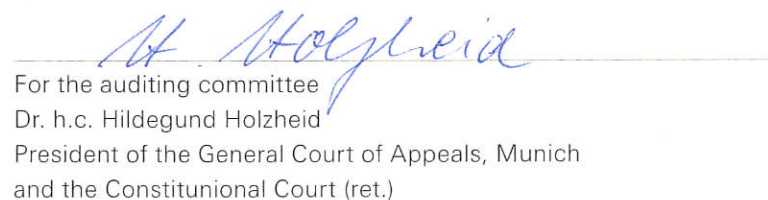 H. Holzheid
For the auditing committee
Dr. h.c. Hildegund Holzheid
President of the General Court of Appeals, Munich
and the Constitunional Court (ret.)